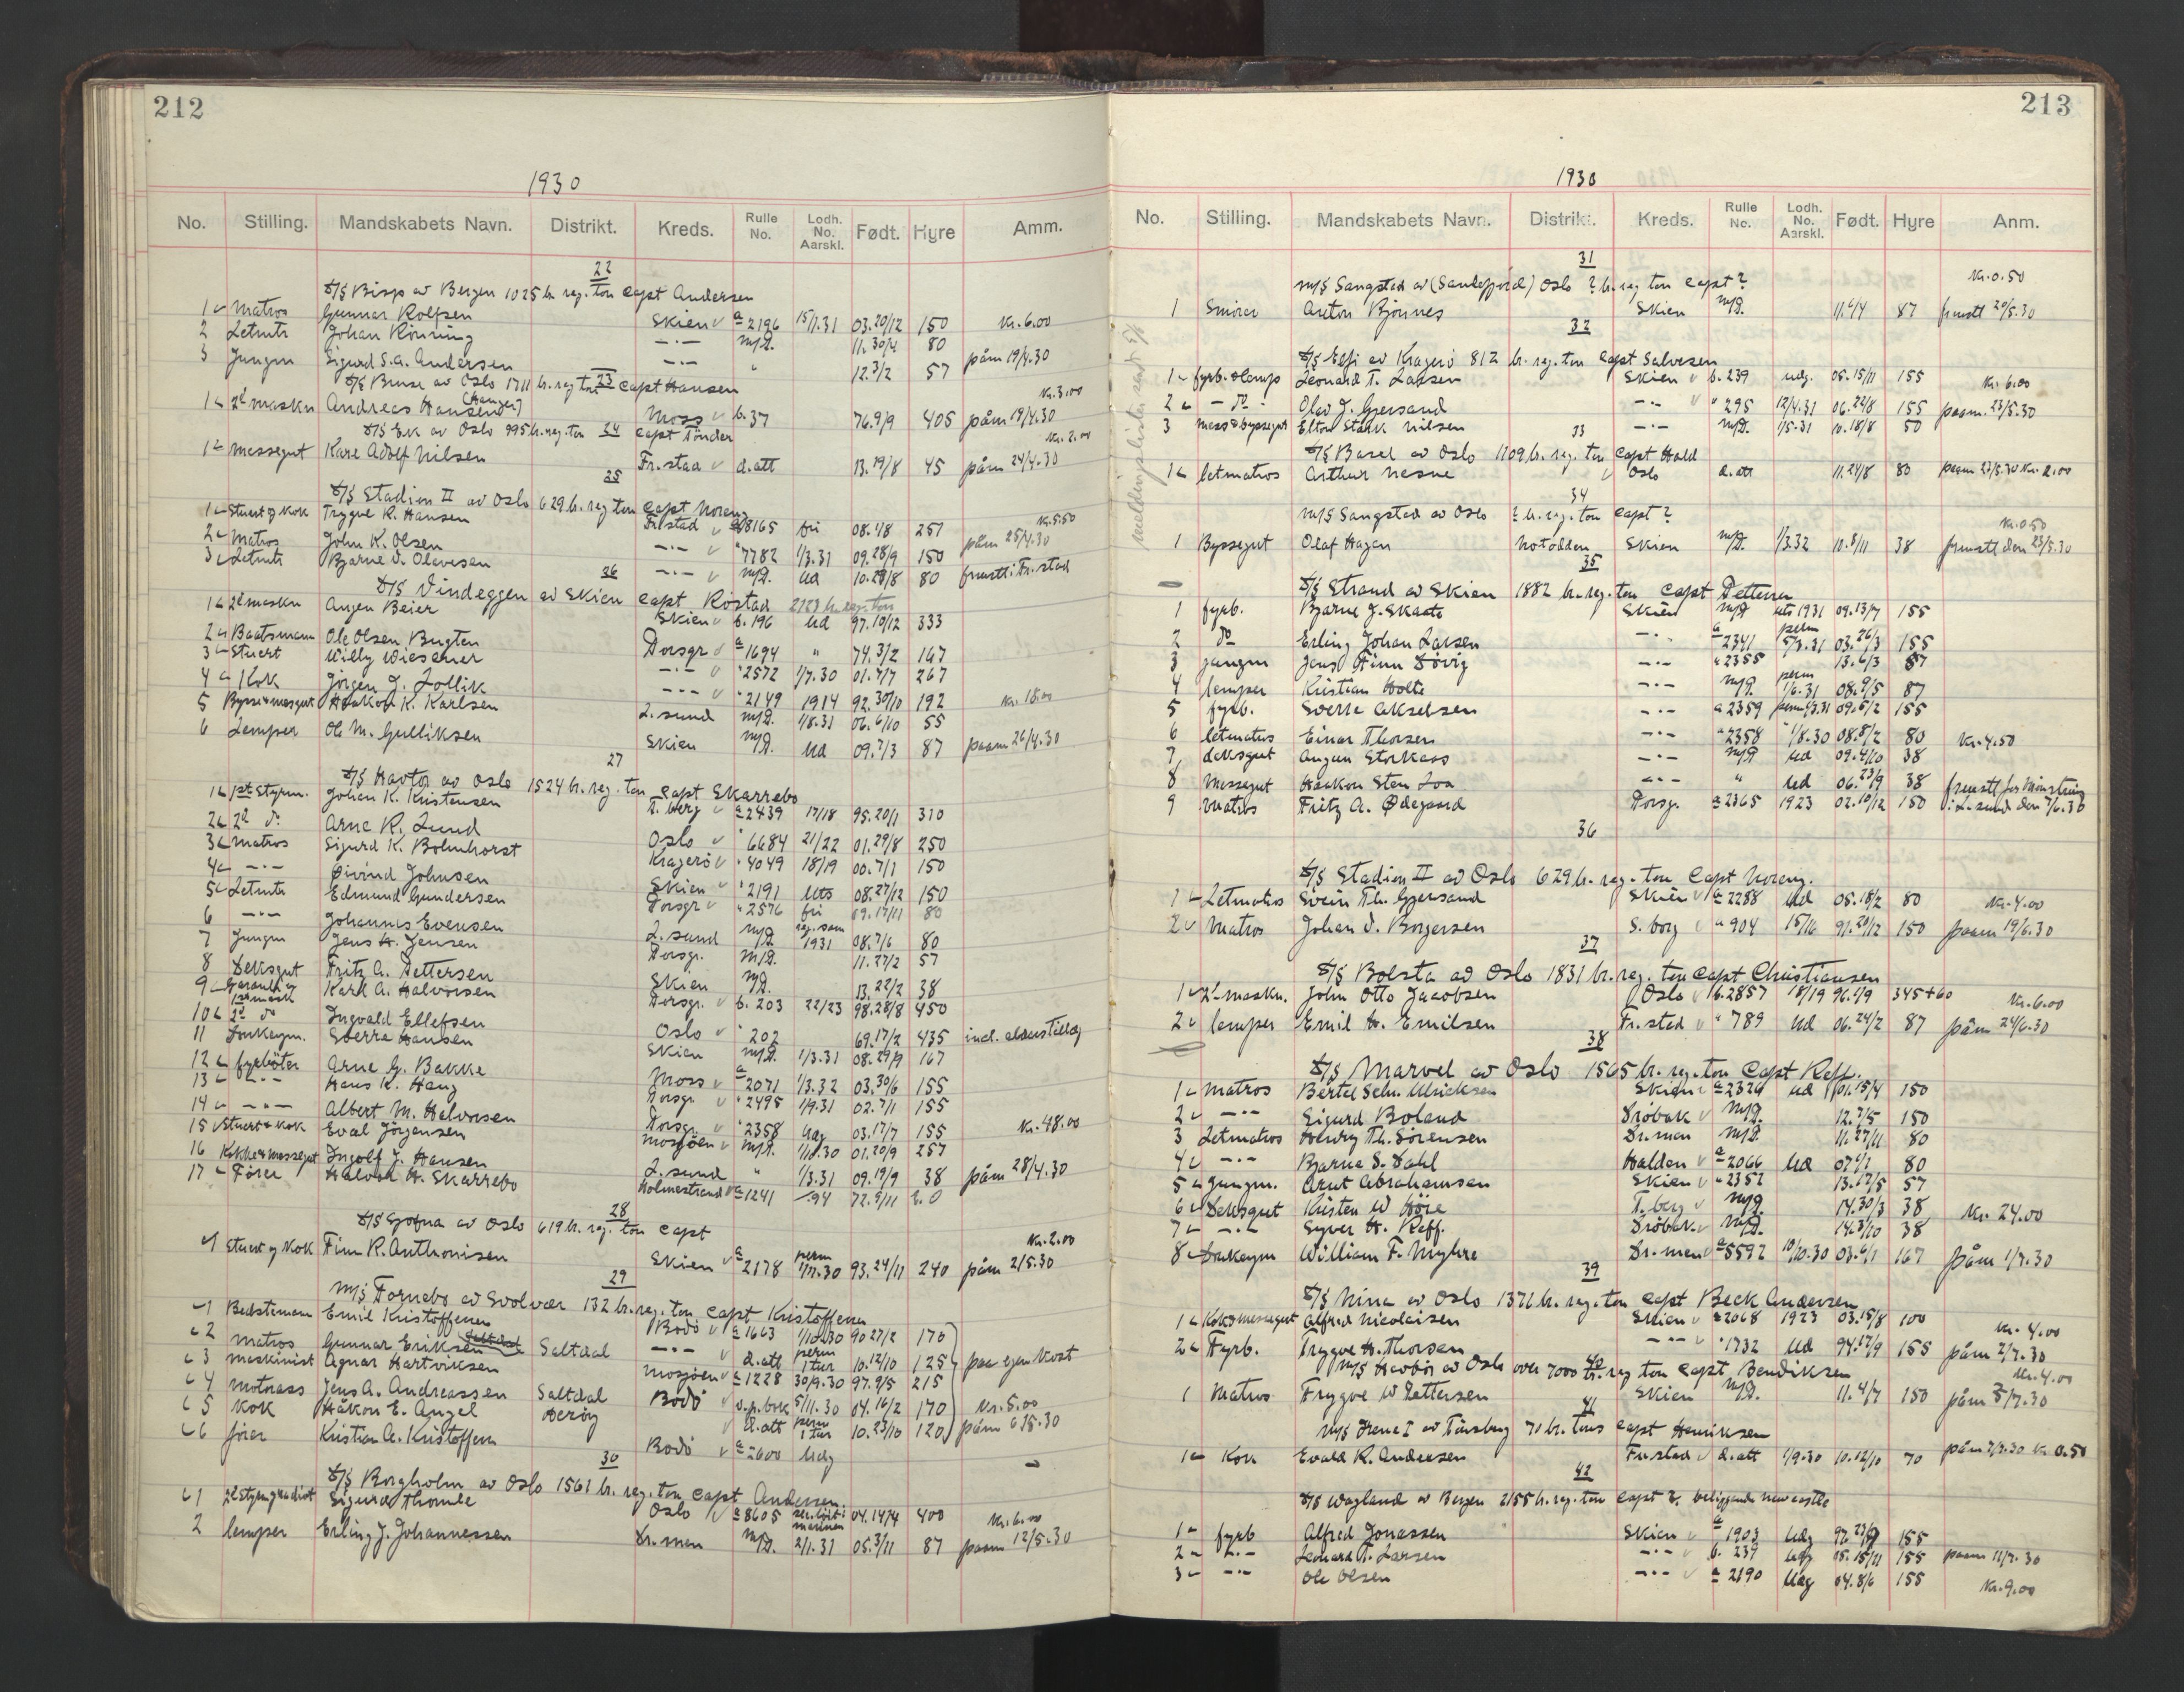 212
1930
No. Stilling. Mandskabets Navn. Distrikt. Kreds. Rulle No. Lodh. No. Aarskl. Født. Hyre Anm.
22
D/S Bisp av Bergen 1025 br. reg. ton Capt Andersen
1 Matros Gunnar Rolfsen Skien a 2196 15/1.31 03.20/12 150 Kr. 6.00
2 Letmtr Johan Rønning —·— m/P. 11.30/4 80
3 Jungm Sigurd S.A. Andersen —·— " 12.3/2 57 påm 19/4.30
23
D/S Bruse av Oslo 1711 br. reg ton Capt Hansen Kr. 3.00
1 2d maskn Andreas Hansen Moss b. 37 76.9/9 405 påm 19/4.30
D/S Ek av Oslo 995 br. reg ton 24 Capt Tønder Kr. 2.00
1 Messegut Kare Adolf Nilsen Fr.stad d.att 13.19/8 45 påm 24/4.30
25
D/S Stadion II av Oslo 629 br. reg ton Capt Noreng
1 Stuert og Kok Trygve R. Hansen Fr.stad a 8165 fri 08.1/8 257 Kr. 5.50
2 Matros John K. Olsen —·— " 7782 1/3.31 09.28/9 150 påm 25/4.30
3 Letmtr Bjarne D. Olavesen —·— m/P. Ud 10.28/8 80 fremst i Fr.stad
26
D/S Vindeggen av Skien Capt Røstad 2723 br. reg. ton
1 2d maskn Augen Beier Skien b. 196 Ud 97.10/12 333
2 Baatsmann Ole Olsen Bugten Porsgr a 1694 " 74.3/2 167
3 Stuert Willy Wiesener —·— " 2572 1/7.30 01.4/7 267
4 Kok Jørgen J. Lollik —·— " 2149 1914 92.30/10 192
5 Bysse&mesgut Haakon K. Karlsen L.sund m/P. 1/8.31 06.6/10 55 Kr. 18.00
6 Lemper Ole M. Gulliksen Skien m/P. Ud 09.7/3 87 paam 26/4.30
27
D/S Havtor av Oslo 1524 br. reg. ton Capt Skarrebo
1 1st Styrm. Johan K. Kristensen T.berg a 2439 17/18 95.20/1 310
2 2d do Arne R. Lund Oslo " 6684 21/22 01.29/8 250
3 Matros Sigurd K. Bolmhorst Kragerö " 4049 18/19 00.7/1 150
4 —·— Øivind Johnsen Skien " 2191 Uts 08.27/12 150
5 Letmtr Edmund Gundersen Porsgr " 2576 fri 09.17/11 80
6 —·— Johannes Evensen L.sund m/P. reg. som 1931 08.7/6 80
7 Jungm Jens H. Jensen Porsgr. m/P. 11.27/2 57
8 Deksgut Fritz A. Pettersen Skien m/P. 13.22/2 38
9 Garanti og 1st mask Karl A. Halvorsen Porsgr. b. 203 22/23 98.28/8 450
10 2d do Ingvald Ellefsen Oslo " 202 69.17/2 435 incl. alderstillæg
11 Donkeym. Sverre Hansen Skien m/P. 1/3.31 08.29/9 167
12 fyrböter Arne G. Bakke Moss a 2071 1/3.32 03.30/6 155
13 —·— Hans K. Haug Porsgr. " 2495 1/9.31 02.7/1 155
14 —·— Albert M. Halvorsen Porsgr " 2358 Udg 03.17/7 155
15 Stuert & Kok Eval Jörgensen Mosjøen m/P. 1/10.30 01.20/9 257 Kr. 48.00
16 Kokke & messegut Ingolf J. Hansen L.sund " 1/3.31 09.19/9 38 påm 28/4.30
17 Fører Halvor H. Skarrebo Holmestrand a 1241 94 72.9/11 ?.0
28
D/S Gjofna av Oslo 619 br. reg. ton Capt
1 Stuert og Kok Finn R. Anthonisen Skien a 2178 perm 1/11.30 93.24/11 240 Kr. 2.00 påm 2/5.30
29
M/S Fornebo av Svolvær 132 br. reg. ton Capt Kristoffersen
1 Bedstemann Emil Kristoffersen Bodö a 1663 1/10.30 90 27/2 170
2 matros Gunnar Eriksen Saltdal —·— d.att perm 1 tur 10.12/10 125 paa egen Kost
3 maskinist Agnar Hartviksen Mosjöen a 1228 30/9.30 97.9/5 215
4 motorass Jens A. Andreassen Saltdal Bodö d.p.bok 5/11.30 04.16/2 170 Kr. 5.00
5 Kok Håkon E. Angel Herøy d.att perm 1 tur 10.23/10 120 påm 6/5.30
6 förer Kristian A. Kristoffersen Bodö a 2600 Udg
30
D/S Borgholm av Oslo 1561 br. reg. ton Capt Andersen
1 2d styrm & radiot Sigurd Thomle Oslo a 8605 04.14/4 400 Kr. 6.00
2 lemper Erling J. Johannessen Dr.men m/P. 2/1.31 05.3/11 87 paam 12/5.30
213
1930
No. Stilling. Mandskabets Navn. Distrikt. Kreds. Rulle No. Lodh. No. Aarskl. Født. Hyre Anm.
31
M/S Sangstad av (Sandefjord) Oslo ? br. reg ton Capt ? Kr. 0.50
1 Smörer Anton Bjönnes Skien m/P. 11.6/4 87 fremstl 20/5.30
32
D/S Elfi av Kragerö 812 br. reg. ton Capt Salvesen
1 fyrb. & lemp Leonard T. Larsen Skien b. 239 udg. 05.15/11 155 Kr. 6.00
2 — do — Olav J. Gjersand —·— " 295 12/4.31 06.22/8 155 paam. 23/5.30
3 mess & byssegut Elton Stark Nilsen —·— m/P. 1/5.31 10.18/8 50
33
D/S Basel av Oslo 1109 br. reg. ton Capt Hald
1 letmatros Arthur Nesne Oslo d.att 11.24/8 80 paam 23/5.30 Kr. 2.00
34
M/S Sangstad av Oslo ? br. reg. ton Capt ? Kr. 0.50
1 Byssegut Olaf Hagen Notodden Skien m/P. 1/3.32 10.8/11 38 fremstl den 23/5.30
35
D/S Strand av Skien 1882 br. reg. ton Capt Pettersen
1 fyrb. Bjarne J. Skaate Skien m/P uts 1931 09.13/7 155
2 do Erling Johan Larsen —·— a 2341 perm 5/3.31 03.26/3 155
3 jungm Jens Finn Døvig —·— " 2355 13.6/3 57
4 lemper Kristian Holte —·— m/P. perm 1/6.31 08.9/5 87
5 fyrb. Sverre Akselsen —·— a 2359 perm 1/3.31 09.6/2 155
6 letmatros Einar Thorsen —·— " 2358 1/8.30 08.8/2 80 Kr. 4.50
7 deksgut Augun Storkaas —·— m/P Ud 09.4/10 38
8 Messegut Haakon Sten Loa —·— " Ud 06.23/9 38 fremstl for Mönstring
9 matros Fritz A. Ødegaard Porsgr. a 2365 1923 02.10/12 150 i L.sund den 7/6.30
36
D/S Stadion II av Oslo 629 br. reg. ton Capt Noreng.
1 Letmatros Svein Th. Gjersand Skien a 2288 Ud 05.18/2 80 Kr. 4.00
2 Matros Johan D. Borgersen S.borg " 904 15/16 91.20/12 150 paam 19/6.30
37
D/S Bolsta av Oslo 1831 br. reg. ton Capt Christiansen
1 2d maskn. John Otto Jacobsen Oslo b. 2857 18/19 96.1/9 345+60 Kr. 6.00
2 lemper Emil H. Emilsen Fr.stad " 789 Ud 06.24/2 87 påm 24/6.30
38
D/S Marvel av Oslo 1565 br. reg. ton Capt Reff.
1 Matros Bertel Selm. Ulricksen Skien a 2326 Ud 01.15/4 150
2 —·— Sigurd Boland Dröbak m/P. 12.7/5 150
3 Letmatros Henry Th. Sörensen Dr.men m/P. 11.27/11 80
4 —·— Bjarne S. Dahl Halden a 2066 Ud 07.1/1 80
5 Jungm. Arnt Abrahamsen Skien " 2352 13.12/5 57
6 Deksgut Kristen W Höie T.berg m/P. 14.30/3 38 Kr. 24.00
7 —·— Syver H. Reff. Dröbak m/P. 14.3/10 38
8 Donkeym William F. Myhre Dr.men a 5592 10/10.30 03.6/1 167 påm 1/7.30
39
D/S Nina av Oslo 1371 br. reg. ton Capt Beck Andersen
1 Kok & messegut Alfred Nicolaisen Skien a 2068 1923 03.15/8 100 Kr. 4.00
2 Fyrb. Trygve H. Thorsen —·— " 1732 Ud 94.17/9 155 påm 2/7.30
40
M/S Havbör av Oslo over 7000 br. reg ton Capt Bendiksen Kr. 4.00
1 Matros Trygve W Pettersen Skien m/P. 11.4/7 150 påm 5/7.30
41
M/S Irene I av Tönsberg 71 br. tons Capt Henriksen
1 Kok Evald R. Andersen Fr.stad d.att 1/9.30 10.12/10 70 påm 7/7.30 Kr. 0.50
42
D/S Wagland av Bergen 2155 br. reg. ton Capt ?. beliggende Newcastle
1 fyrb Alfred Jonassen Skien a 1903 Udg 155
2 —·— Leonard T. Larsen —·— b. 239 udg 05.15/11 155 paam 11/7.30
3 —·— Ole Olsen —·— a 2190 Udg 04.8/6 155 Kr. 9.00